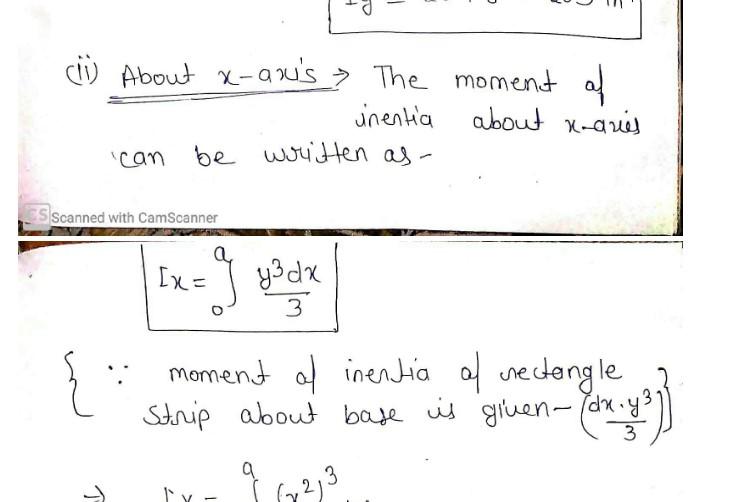 (ii) About x-axis → The moment of
inertia about x-axis
can be written as -
CS Scanned with CamScanner
Ix = ∫₀ᵃ y³dx/3
{ ∵ moment of inertia of rectangle
strip about base is given - (dx·y³/3) }
⇒ Ix = ∫ᵃ (x²)³